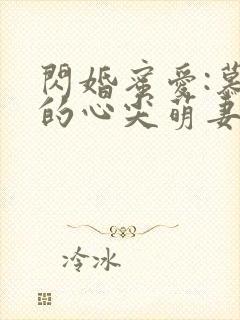 閃婚蜜愛:慕
的心尖萌妻
冷冰